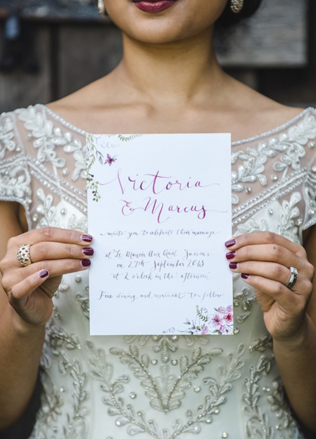 Victoria
& Marcus
invite you to celebrate their marriage
at
on 27th September 2013
at o'clock in the afternoon
Fine dining and merriment to follow